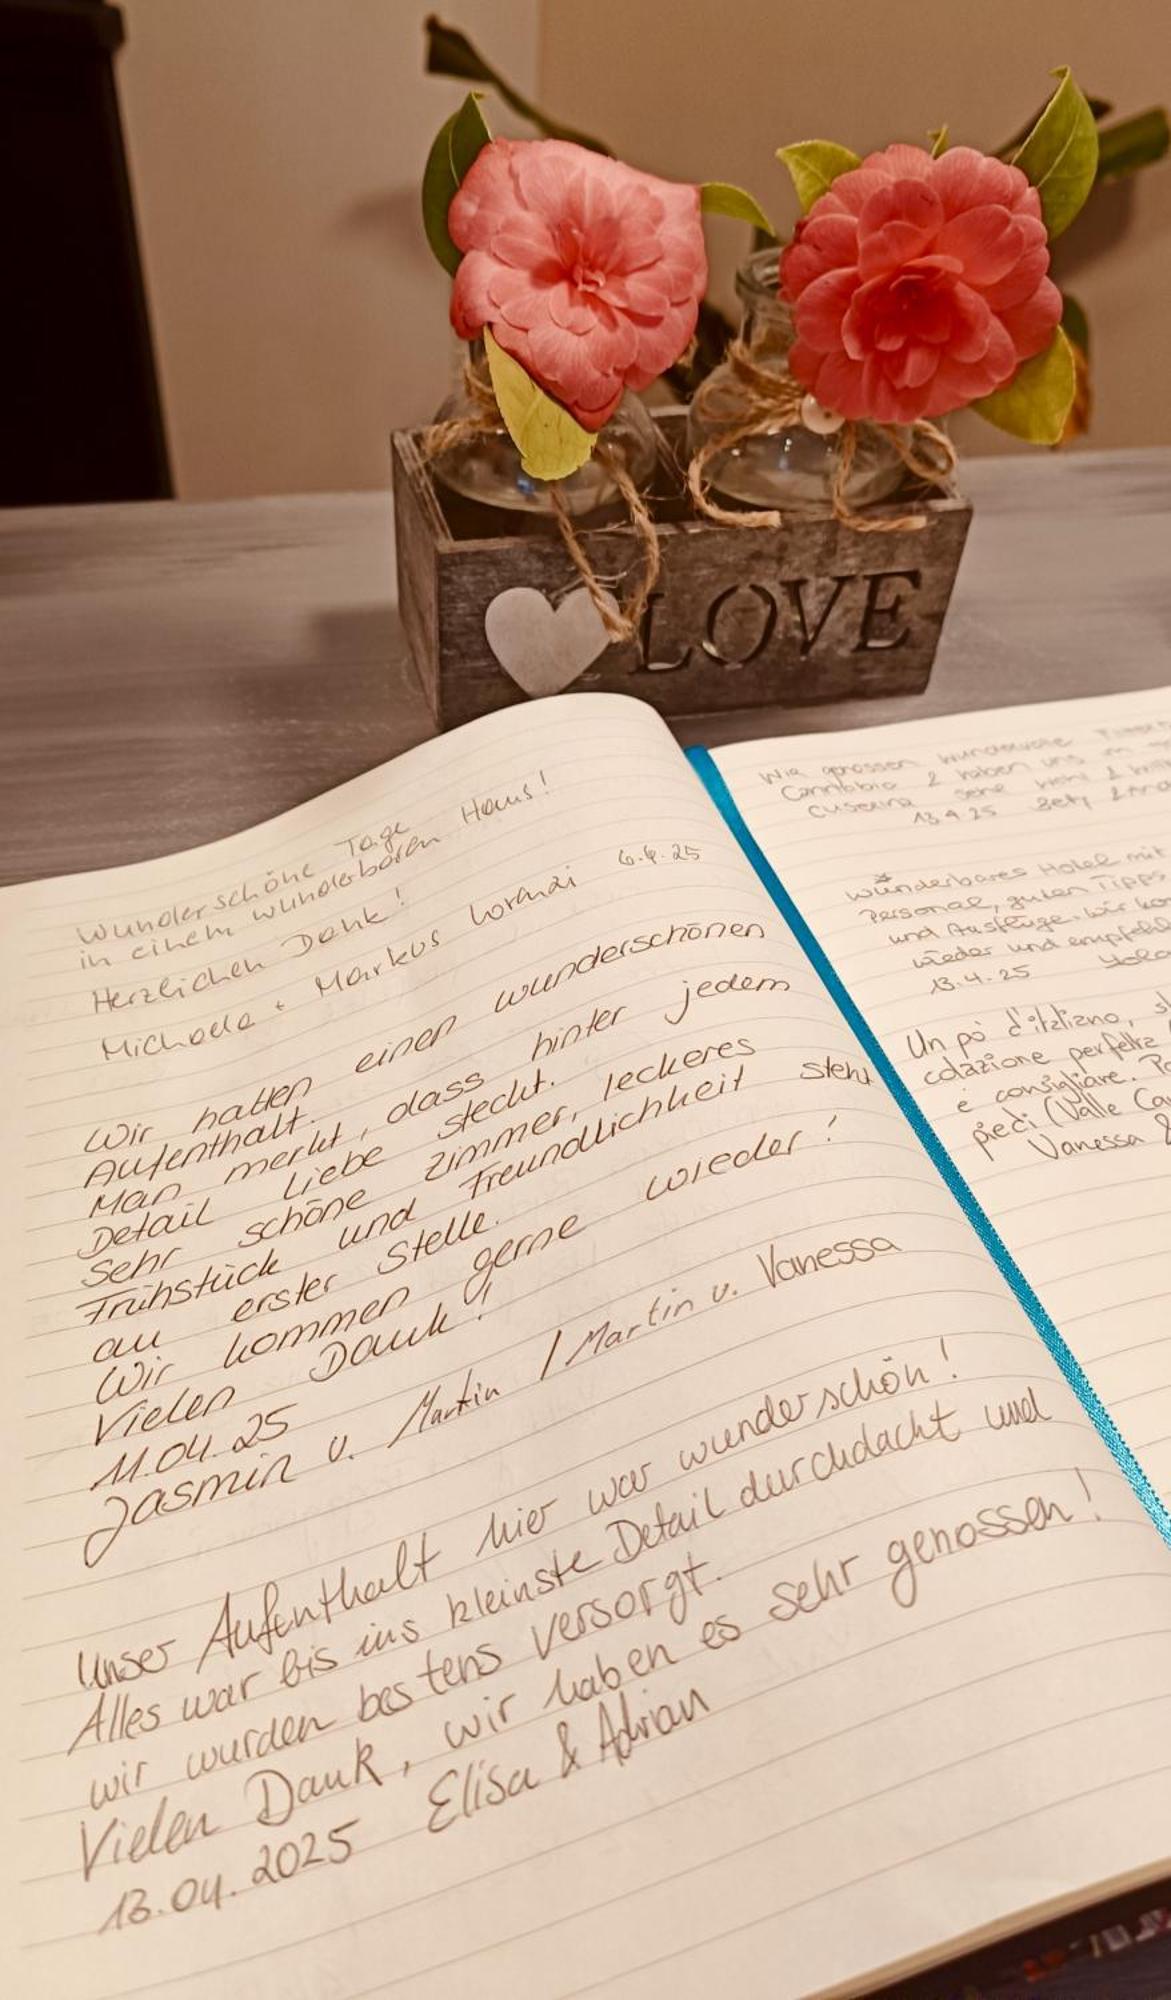 LOVE
Wunderschöne Tage
in einem wunderbaren Haus!
Herzlichen Dank!
Michaela + Markus 6.4.25
Wir hatten einen wunderschönen
Aufenthalt.
Man merkt, dass hinter jedem
Detail Liebe steckt.
Sehr schöne Zimmer, leckeres
Frühstück und Freundlichkeit steht
an erster Stelle.
Wir kommen gerne wieder!
Vielen Dank!
11.04.25
Jasmin u. Martin / Martin u. Vanessa
Unser Aufenthalt hier war wunderschön!
Alles war bis ins kleinste Detail durchdacht und
wir wurden bestens versorgt.
Vielen Dank, wir haben es sehr genossen!
13.04.2025 Elisa & Adrian
Wir genossen wundervolle
Cannobio & haben uns
sehr wohl &
13.4.25
wunderbares Hotel mit
Personal, guten Tipps
und Ausflüge. Wir
wieder und
13.4.25
Un pò d'italiano,
colazione perfetta
e consigliare.
piedi (Valle
Vanessa &